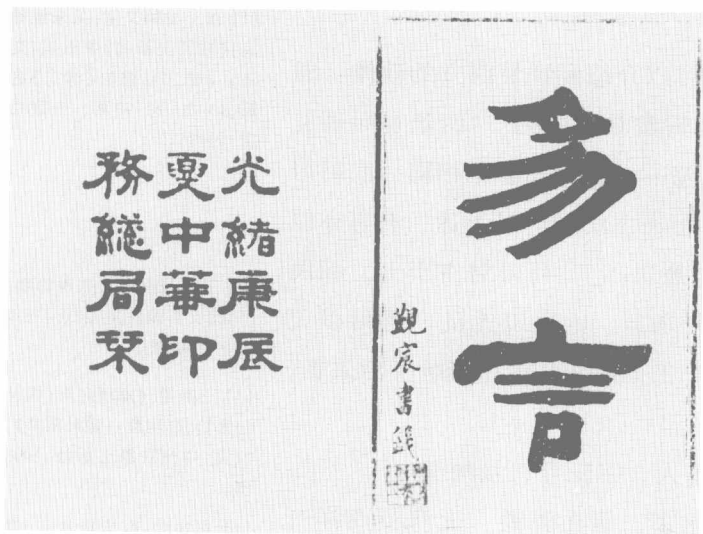 易言
覲宸書籤
光緒庚辰
夏中華印
務總局栞